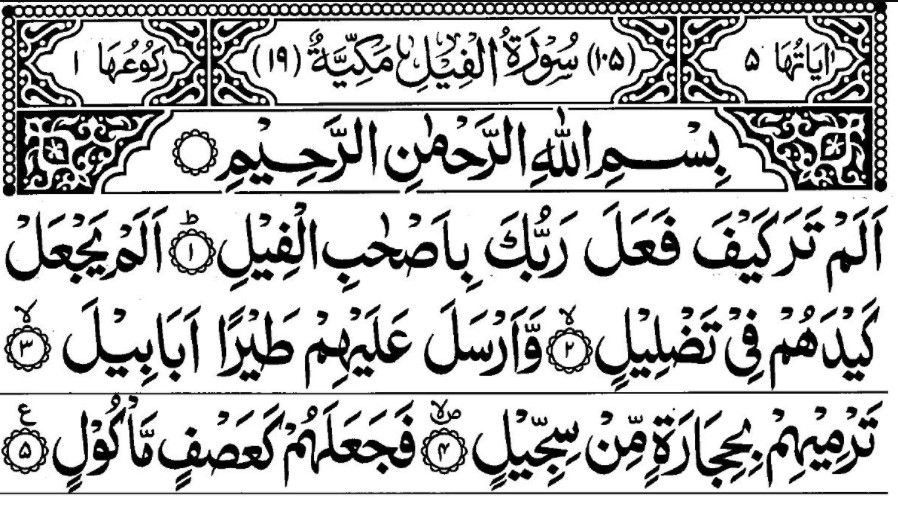 اٰيَاتُهَا ۵ (۱۰۵) سُوْرَةُ الْفِيْلِ مَكِّيَّةٌ (۱۹) رُكُوْعُهَا ۱
بِسْمِ اللّٰهِ الرَّحْمٰنِ الرَّحِيْمِ ۝
اَلَمْ تَرَ كَيْفَ فَعَلَ رَبُّكَ بِاَصْحٰبِ الْفِيْلِ ؕ﴿۱﴾ اَلَمْ يَجْعَلْ
كَيْدَهُمْ فِىْ تَضْلِيْلٍ ۙ﴿۲﴾ وَّاَرْسَلَ عَلَيْهِمْ طَيْرًا اَبَابِيْلَ ۙ﴿۳﴾
تَرْمِيْهِمْ بِحِجَارَةٍ مِّنْ سِجِّيْلٍ ۪ۙ﴿۴﴾ فَجَعَلَهُمْ كَعَصْفٍ مَّاْكُوْلٍ ﴿۵﴾ ع